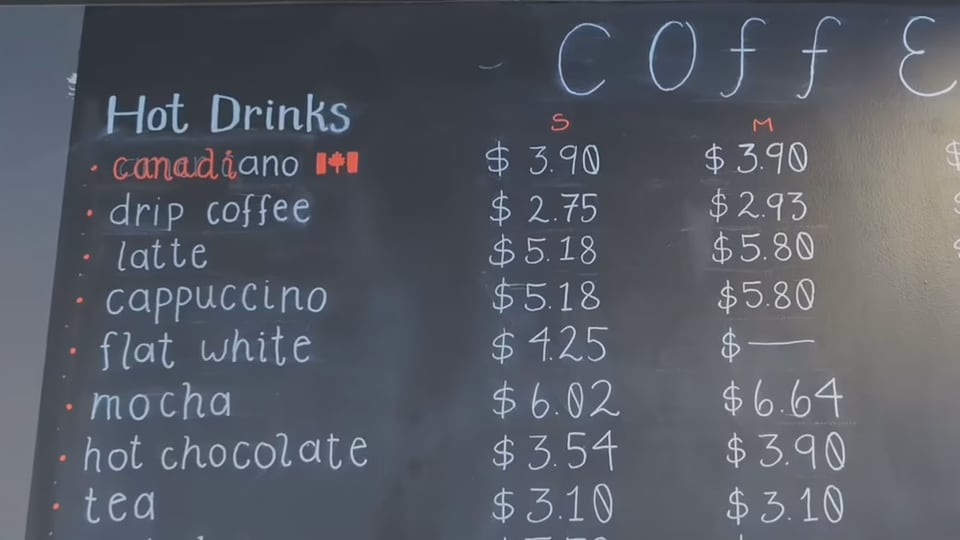 COffE
Hot Drinks S M
• canadiano $ 3.90 $ 3.90
• drip coffee $ 2.75 $ 2.93
• latte $ 5.18 $ 5.80
• cappuccino $ 5.18 $ 5.80
• flat white $ 4.25 $ —
• mocha $ 6.02 $ 6.64
• hot chocolate $ 3.54 $ 3.90
• tea $ 3.10 $ 3.10